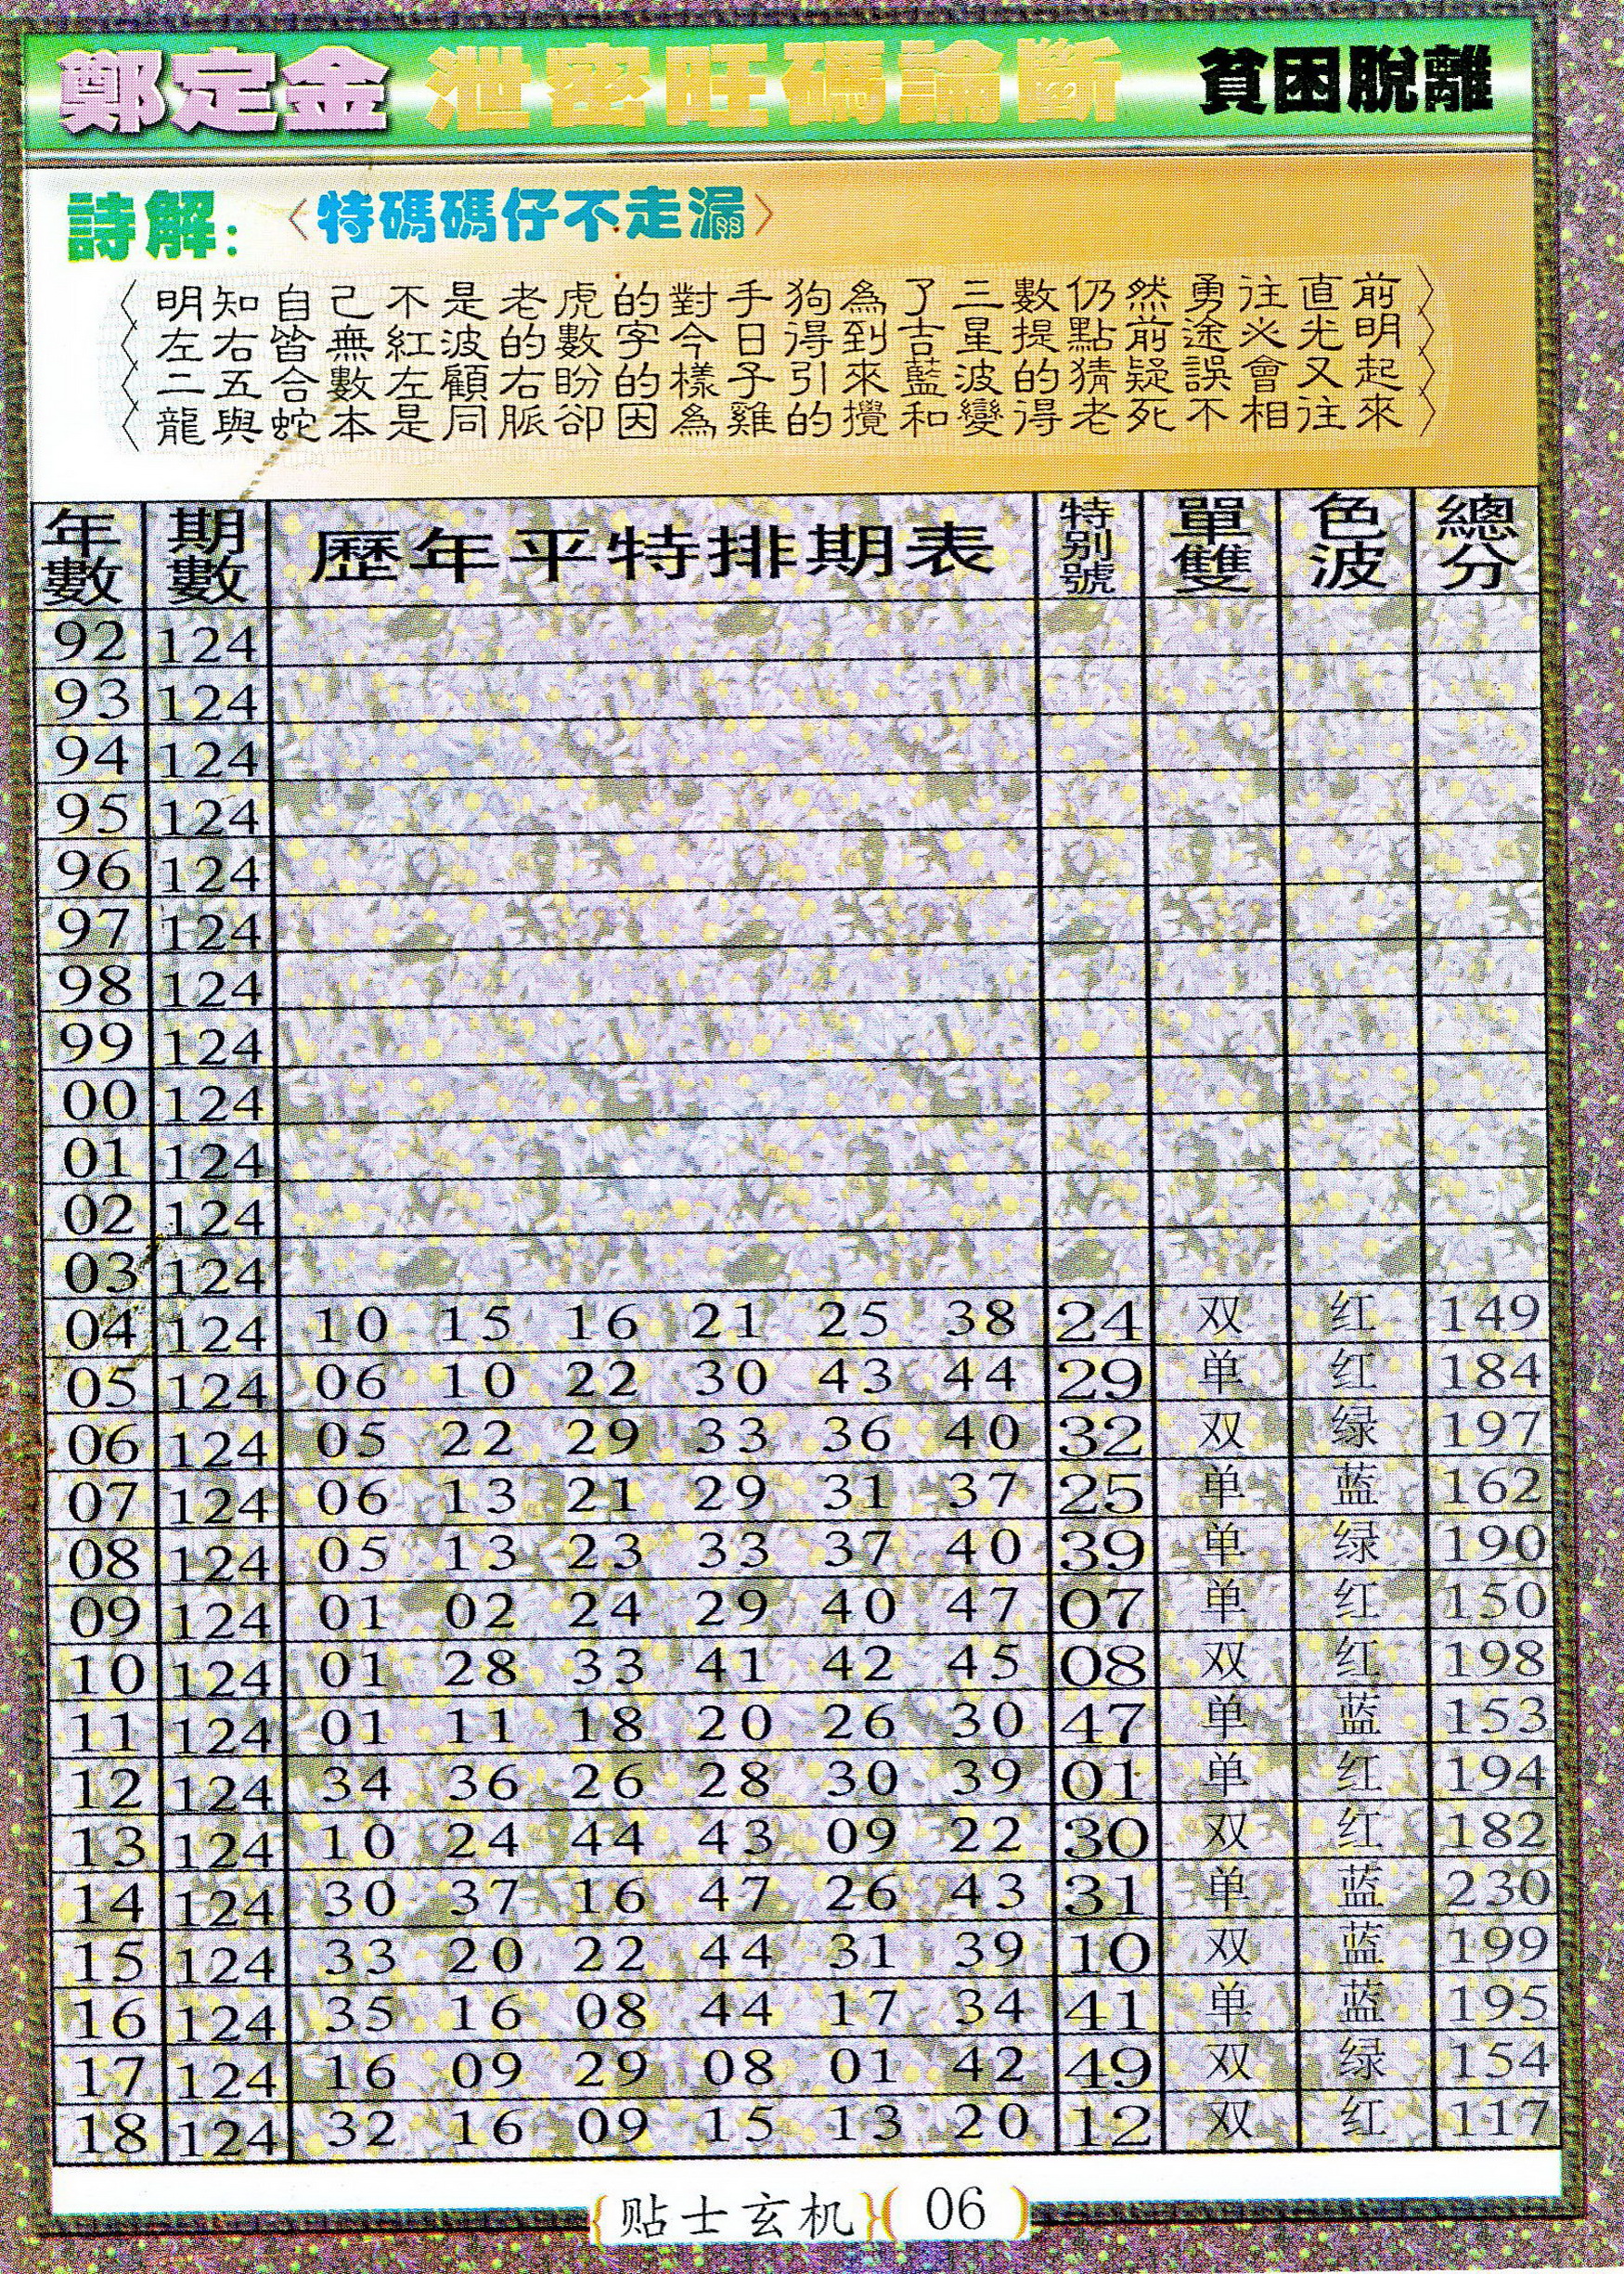 鄭定金 泄密旺碼論斷 貧困脫離
詩解：〈特碼碼仔不走漏〉
〈明知自己不是老虎的對手狗為了三數仍然勇往直前〉
〈左右皆無紅波的數字今日得到吉星提點前途必光明〉
〈二五合數左顧右盼的樣子引來藍波的猜疑誤會又起〉
〈龍與蛇本是同脈卻因為雞的攪和變得老死不相往來〉
年數 期數 歷年平特排期表 特别號 單雙 色波 總分
92 124
93 124
94 124
95 124
96 124
97 124
98 124
99 124
00 124
01 124
02 124
03 124
04 124 10 15 16 21 25 38 24 双 红 149
05 124 06 10 22 30 43 44 29 单 红 184
06 124 05 22 29 33 36 40 32 双 绿 197
07 124 06 13 21 29 31 37 25 单 蓝 162
08 124 05 13 23 33 37 40 39 单 绿 190
09 124 01 02 24 29 40 47 07 单 红 150
10 124 01 28 33 41 42 45 08 双 红 198
11 124 01 11 18 20 26 30 47 单 蓝 153
12 124 34 36 26 28 30 39 01 单 红 194
13 124 10 24 44 43 09 22 30 双 红 182
14 124 30 37 16 47 26 43 31 单 蓝 230
15 124 33 20 22 44 31 39 10 双 蓝 199
16 124 35 16 08 44 17 34 41 单 蓝 195
17 124 16 09 29 08 01 42 49 双 绿 154
18 124 32 16 09 15 13 20 12 双 红 117
{贴士玄机}(06)